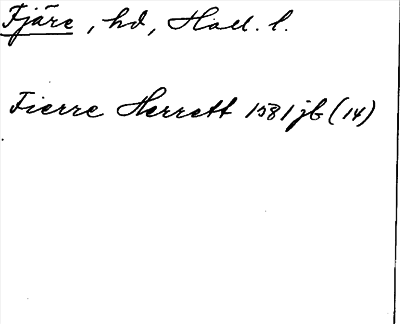 Fjäre, hd, Hall. l.
Fierre Herrett 1581 jb (14)